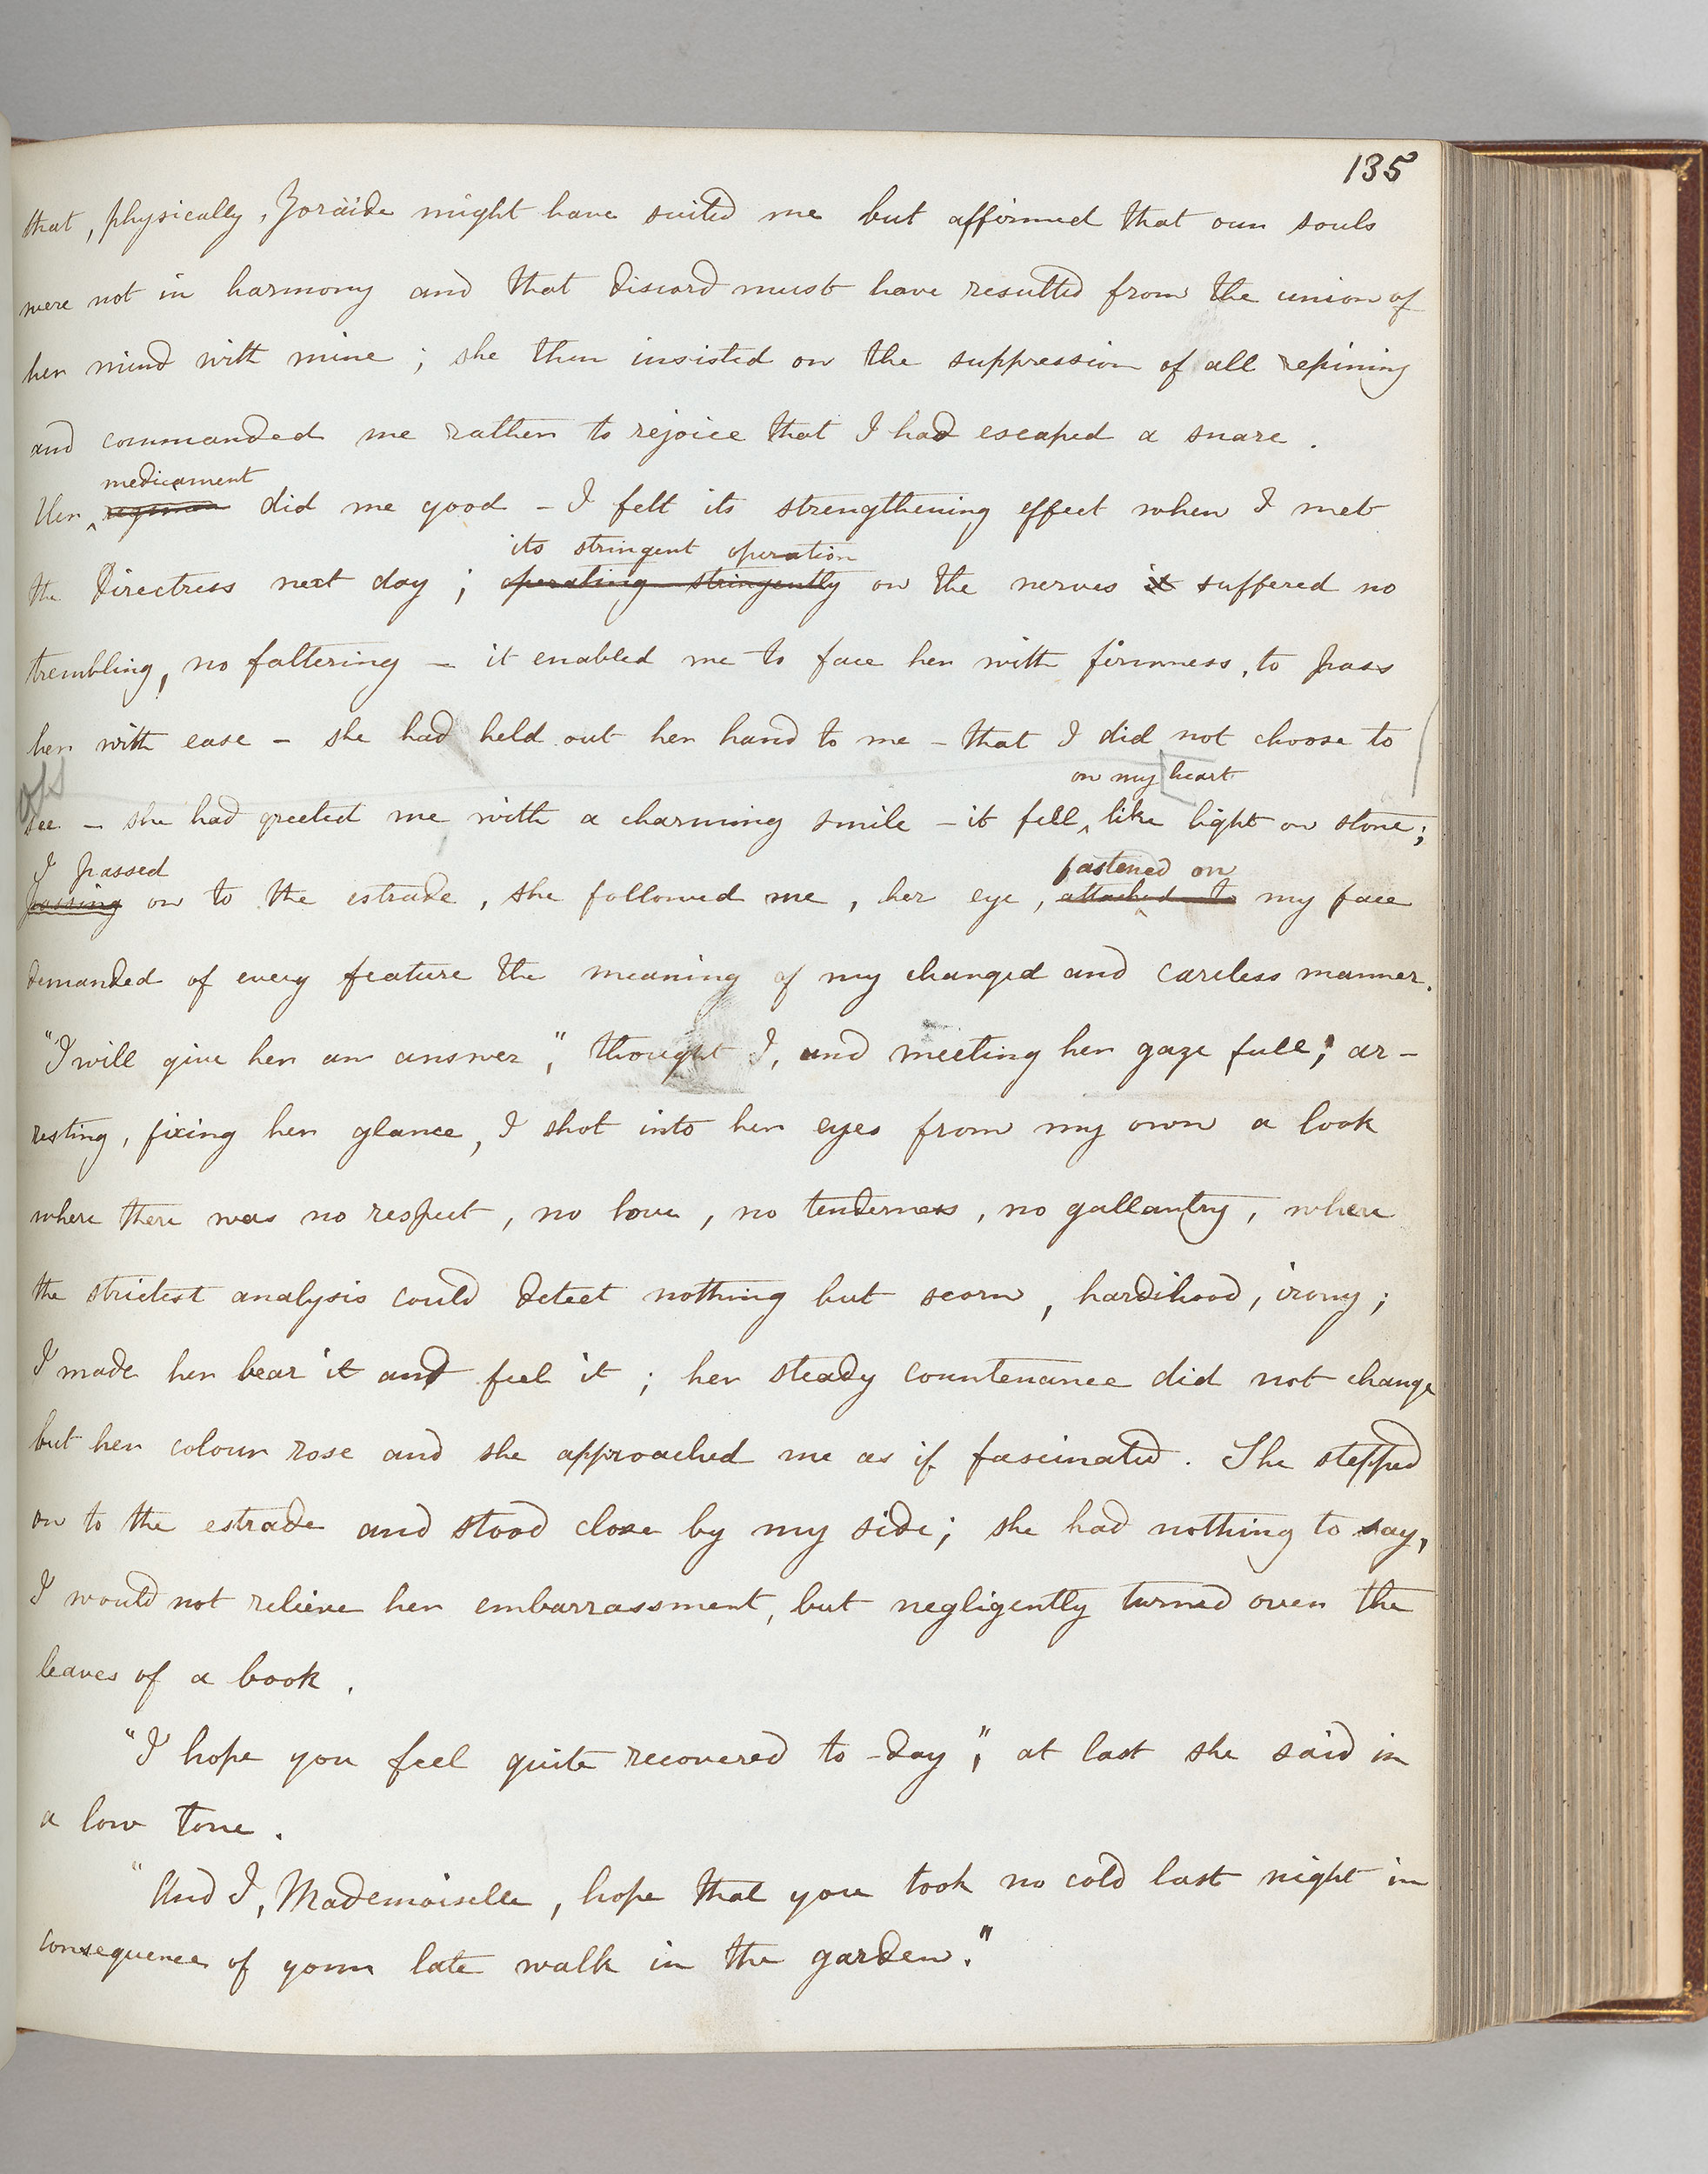 135
that, physically, Zoräide might have suited me but affirmed that our souls
were not in harmony and that discord must have resulted from the union of
her mind with mine ; she then insisted on the suppression of all repining
and commanded me rather to rejoice that I had escaped a snare .
medicament
Her regimen did me good - I felt its strengthening effect when I met
its stringent operation
the Directress next day ; operating stringently on the nerves it suffered no
trembling, no faltering - it enabled me to face her with firmness, to pass
her with ease - she had held out her hand to me - that I did not choose to
on my heart
see - she had greeted me with a charming smile - it fell like light on stone;
I passed fastened on
passing on to the estrade, she followed me, her eye, attached to my face
demanded of every feature the meaning of my changed and careless manner.
"I will give her an answer", thought I, and meeting her gaze full; ar-
resting, fixing her glance, I shot into her eyes from my own a look
where there was no respect, no love, no tenderness, no gallantry, where
the strictest analysis could detect nothing but scorn, hardihood, irony;
I made her bear it and feel it ; her steady countenance did not change
but her colour rose and she approached me as if fascinated. She stepped
on to the estrade and stood close by my side; she had nothing to say,
I would not relieve her embarrassment, but negligently turned over the
leaves of a book.
"I hope you feel quite recovered to-day", at last she said in
a low tone.
"And I, Mademoiselle, hope that you took no cold last night in
consequence of your late walk in the garden."